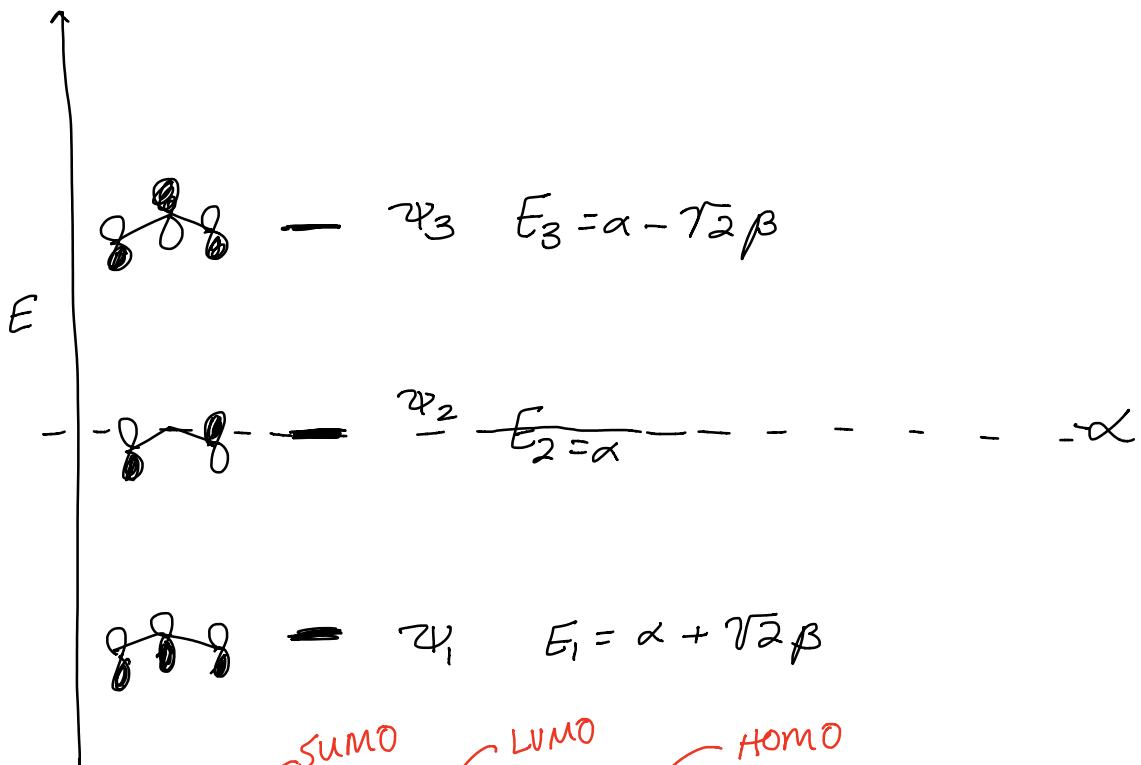 ψ3 E3 = α - √2 β
E
ψ2 E2 = α
α
ψ1 E1 = α + √2 β
SUMO LUMO HOMO